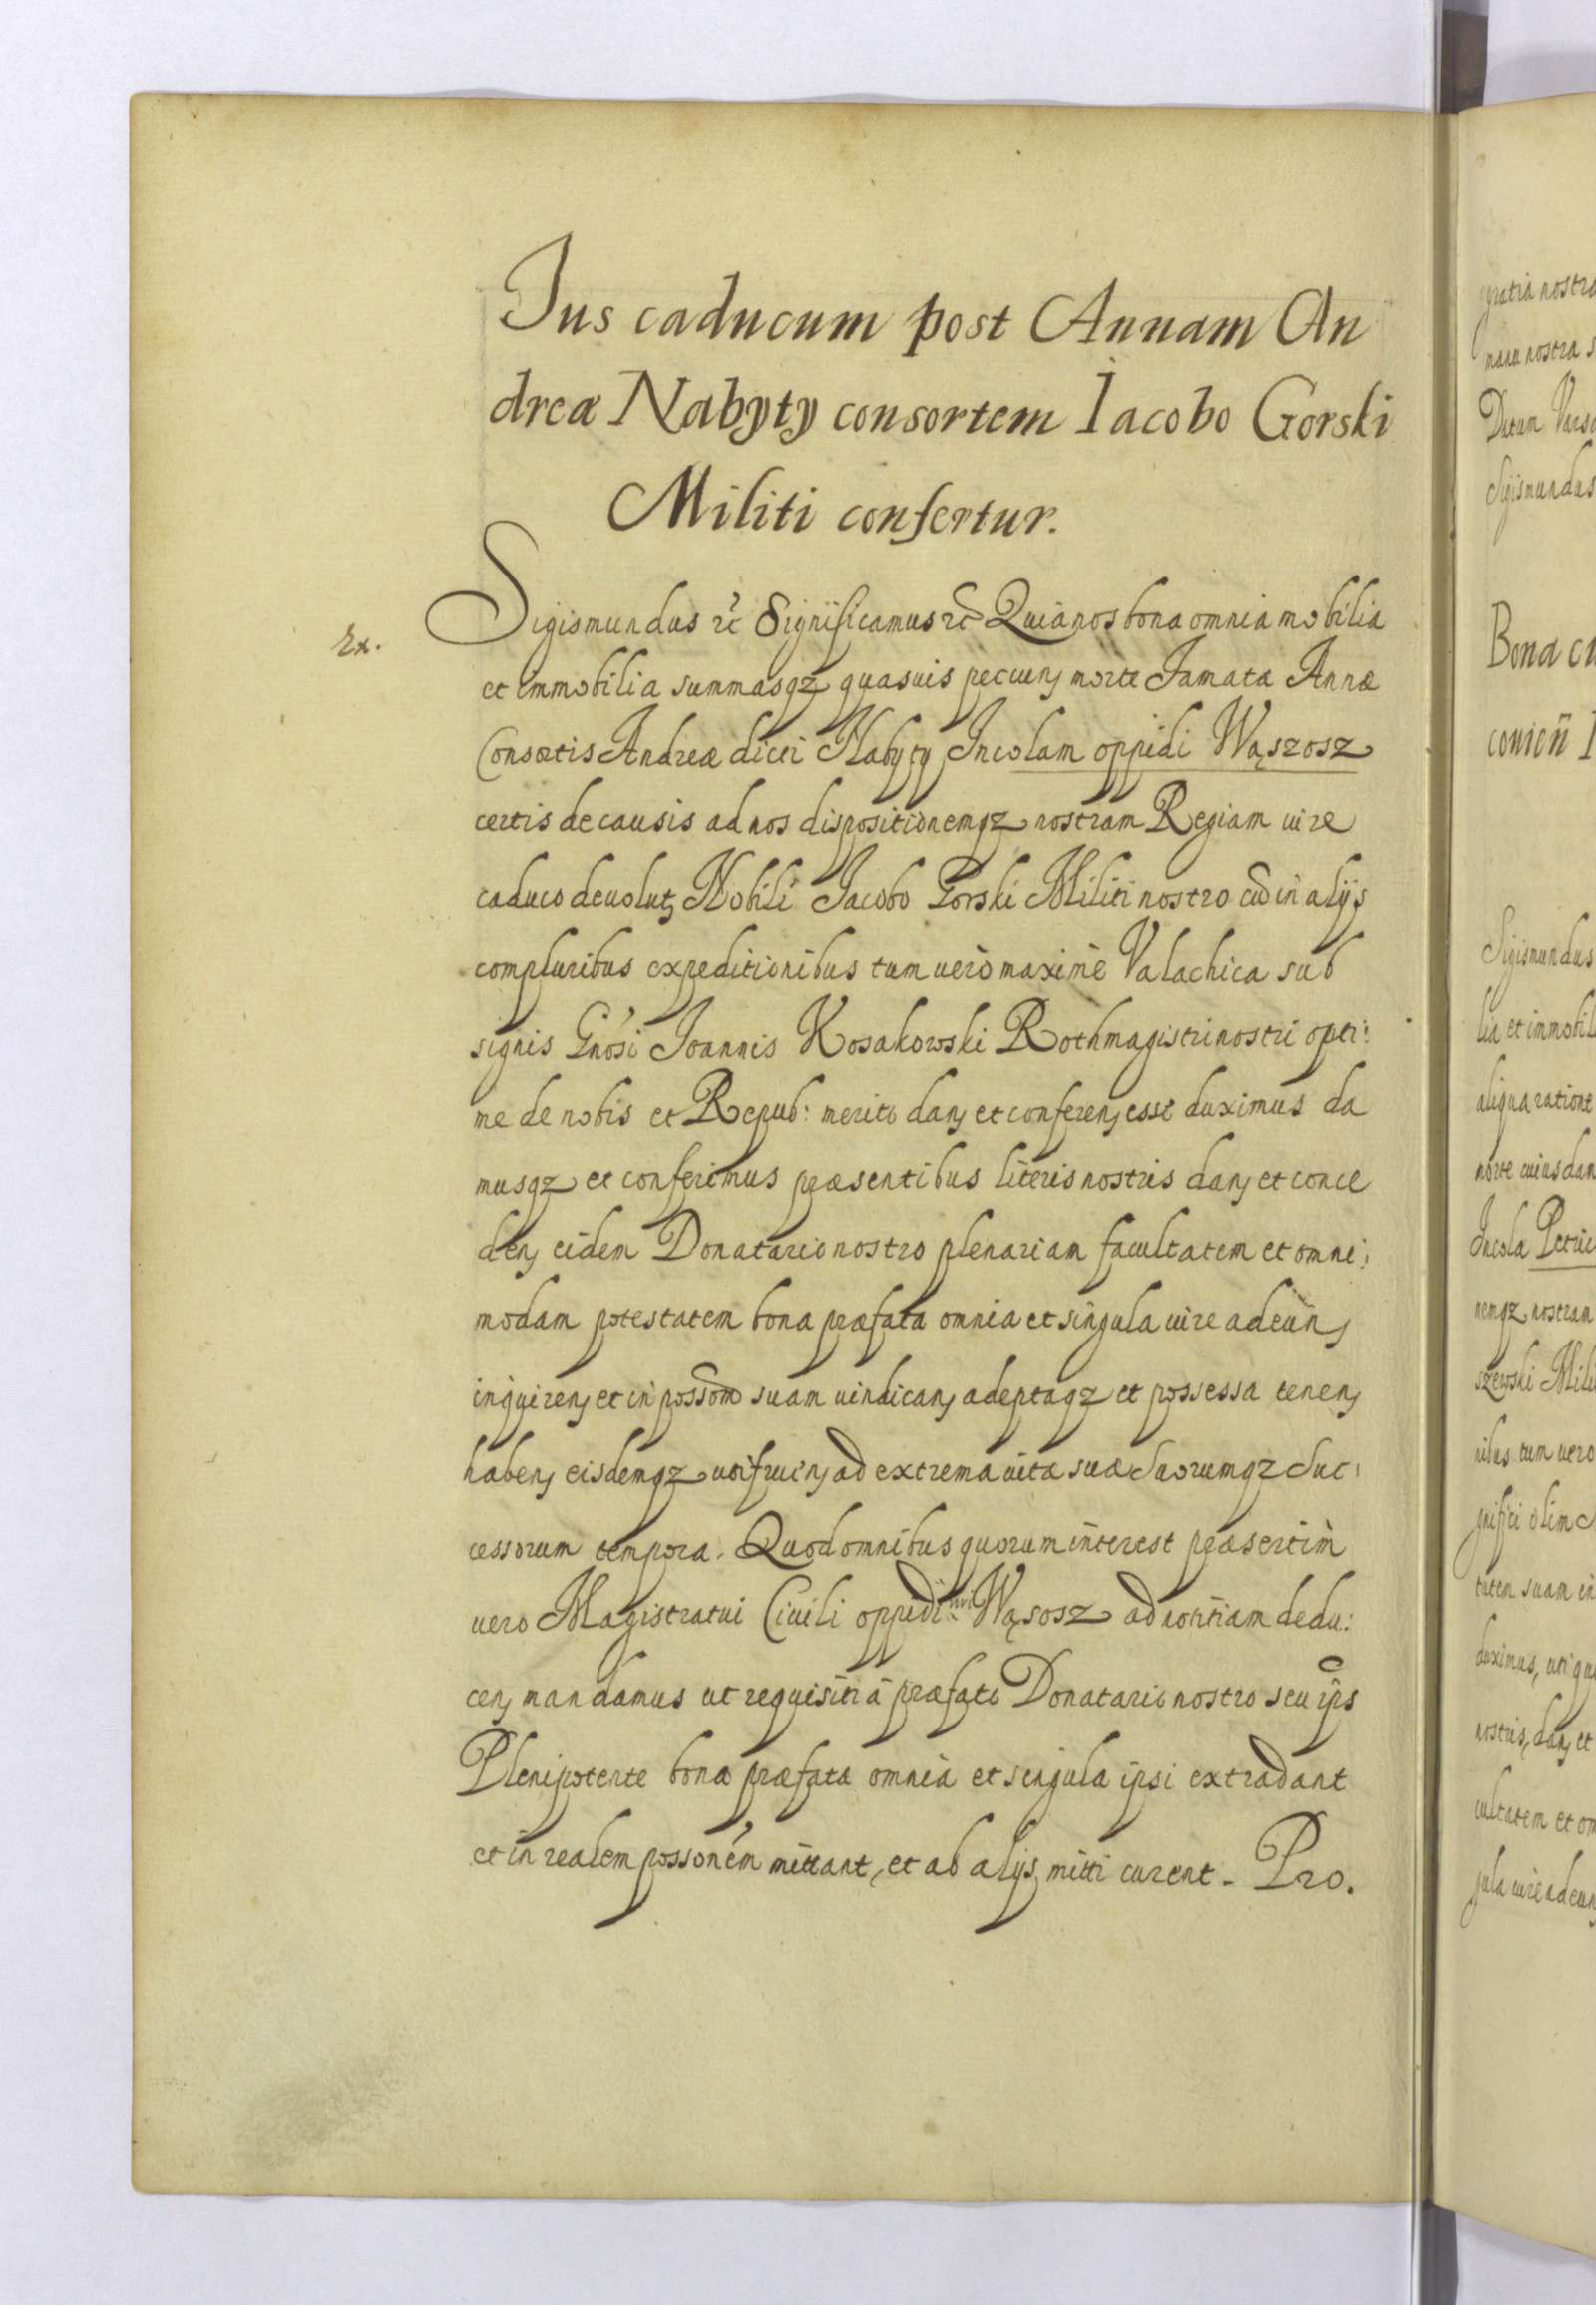 Ius caducum post Annam An
dreæ Nabyty consortem Iacobo Gorski
Militi confertur.
Ex.
Sigismundus etc Significamus etc Quia nos bona omnia mobilia
et immobilia summasqz quasuis pecun, morte Famatæ Annæ
Consortis Andreæ dicti Nabyty Incolam oppidi Wąszosz
certis de causis ad nos dispositionemqz nostram Regiam iure
caduco deuolut, Nobili Iacobo Gorski Militi nostro cū in alijs
compluribus expeditionibus tum uerò maximè Valachica sub
signis Gnósi Joannis Kosakowski Rothmagistri nostri opti:
me de nobis et Repub: merito dan, et conferen, esse duximus da
musqz et conferimus præsentibus literis nostris dan, et conce
den, eidem Donatario nostro plenariam facultatem et omni:
modam potestatem bona præfata omnia et singula iure adeun,
inquiren, et in possom suam uindican, adeptaqz et possessa tenen,
haben, eisdemqz utifruen, ad extrema uitæ suæ suorumqz suc:
cessorum tempora. Quod omnibus quorum interest præsertim
uero Magistratui Ciuili oppidi nri Wąsosz ad notitiam dedu:
cen, mandamus ut requisiti à præfato Donatario nostro seu ips
Plenipotente bona præfata omnia et singula ipsi extradant
et in realem possoném mittant, et ab alijs mitti curent. Pro.
gratia nostra
manu nostra s
Datum Varso
Sigismundus
Bona ca
Sigismundus
lia et immobil
aliqua ratione
morte cuiusdam
Incola Petric
nemqz nostram
szewski Mili
nibus tum uero
gnifici olim
tutem suam in
duximus, uti qu
nostris, dan, et
cultatem et om
gula iure adeun,